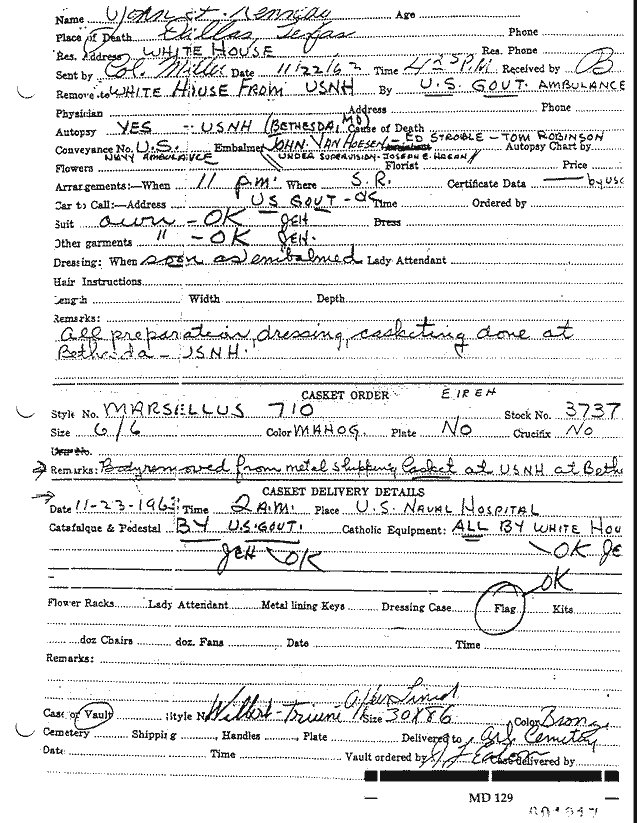 Name John F. Kennedy Age
Place of Death Dallas, Texas Phone
Res. Address WHITE HOUSE Res. Phone
Sent by Col. Miller Date 11/22/63 Time 4:25 P.M. Received by B
Remove to WHITE HOUSE FROM USNH By U.S. GOVT. AMBULANCE
Physician Address Phone
Autopsy YES - USNH (BETHESDA, MD) Cause of Death
Conveyance No. U.S. Embalmer JOHN VAN HOESEN - ED STROBLE - TOM ROBINSON Autopsy Chart by
NAVY AMBULANCE UNDER SUPERVISION - JOSEPH E. HAGAN
Flowers Florist Price
Arrangements:—When 11 p.m. Where S.R. Certificate Data by USG
Car to Call:—Address US GOVT - OK Time Ordered by
Suit own - OK JEH Dress
Other garments " - OK JEH.
Dressing: When soon as embalmed Lady Attendant
Hair Instructions
Length Width Depth
Remarks:
All preparation, dressing, casketing done at
Bethesda - USNH.
CASKET ORDER
Style No. MARSELLUS 710 Stock No. 3737
Size 6/6 Color MAHOG. Plate No Crucifix No
Remarks: Body removed from metal shipping Casket at USNH at Beth
CASKET DELIVERY DETAILS
Date 11-23-1963 Time 2 A.M. Place U.S. NAVAL HOSPITAL
Catafalque & Pedestal BY U.S. GOVT. Catholic Equipment: ALL BY WHITE HOU
JEH - OK - OK JE
OK
Flower Racks Lady Attendant Metal lining Keys Dressing Case Flag Kits
doz Chairs doz. Fans Date Time
Remarks:
Case or Vault Style No Wilbert - Triune Size 30X86 Color Bronz
Cemetery Shipping Handles Plate Delivered to Arl. Cemetery
Date Time Vault ordered by Case delivered by
MD 129